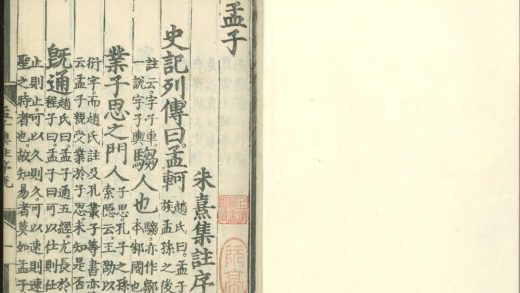 孟子
朱熹集註序
史記列傳曰孟軻
趙氏曰孟子
族孟孫之後
註云字子車
一說字子輿
騶人也
騶亦作鄒
本邾國也
業子思之門人
子思孔子之孫
索隱云王劭以
衍字而趙氏註及孔叢子等書亦
云孟子親受業於子思未知是否
旣通
趙氏曰孟子通五經尤長於
程子曰孟子曰可以仕則仕
止則止可以久則久可以速則速
聖之時者也故知易者莫如孟子
孟子集註序說 一